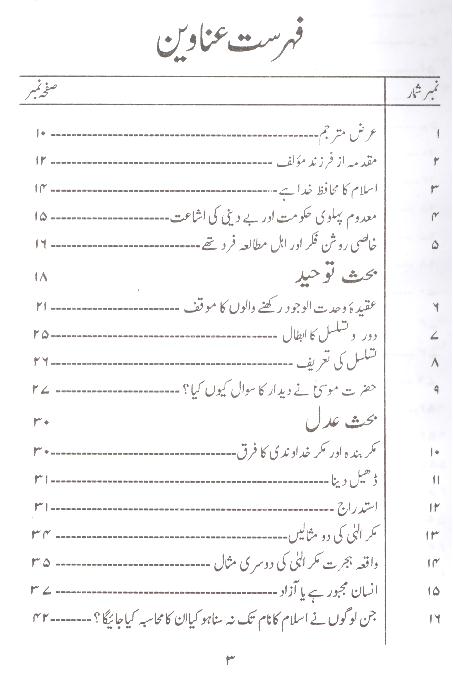 فہرست عناوین
نمبر شمار صفحہ نمبر
۱ عرض مترجم ۱۰
۲ مقدمہ از فرزند مؤلف ۱۲
۳ اسلام کا محافظ خدا ہے ۱۴
۴ معدوم پہلوی حکومت اور بے دینی کی اشاعت ۱۵
۵ خالصی روشن فکر اور اہل مطالعہ فرد تھے ۱۶
بحث توحید ۱۸
۶ عقیدۂ وحدت الوجود رکھنے والوں کا موقف ۲۱
۷ دور و تسلسل کا ابطال ۲۵
۸ تسلسل کی تعریف ۲۶
۹ حضرت موسیٰ نے دیدار کا سوال کیوں کیا؟ ۲۷
بحث عدل ۳۰
۱۰ مکر بندہ اور مکر خداوندی کا فرق ۳۰
۱۱ ڈھیل دینا ۳۱
۱۲ استدراج ۳۱
۱۳ مکر الٰہی کی دو مثالیں ۳۴
۱۴ واقعہ ہجرت مکر الٰہی کی دوسری مثال ۳۵
۱۵ انسان مجبور ہے یا آزاد ۳۷
۱۶ جن لوگوں نے اسلام کا نام تک نہ سنا ہو کیا ان کا محاسبہ کیا جائیگا؟ ۴۲
۳